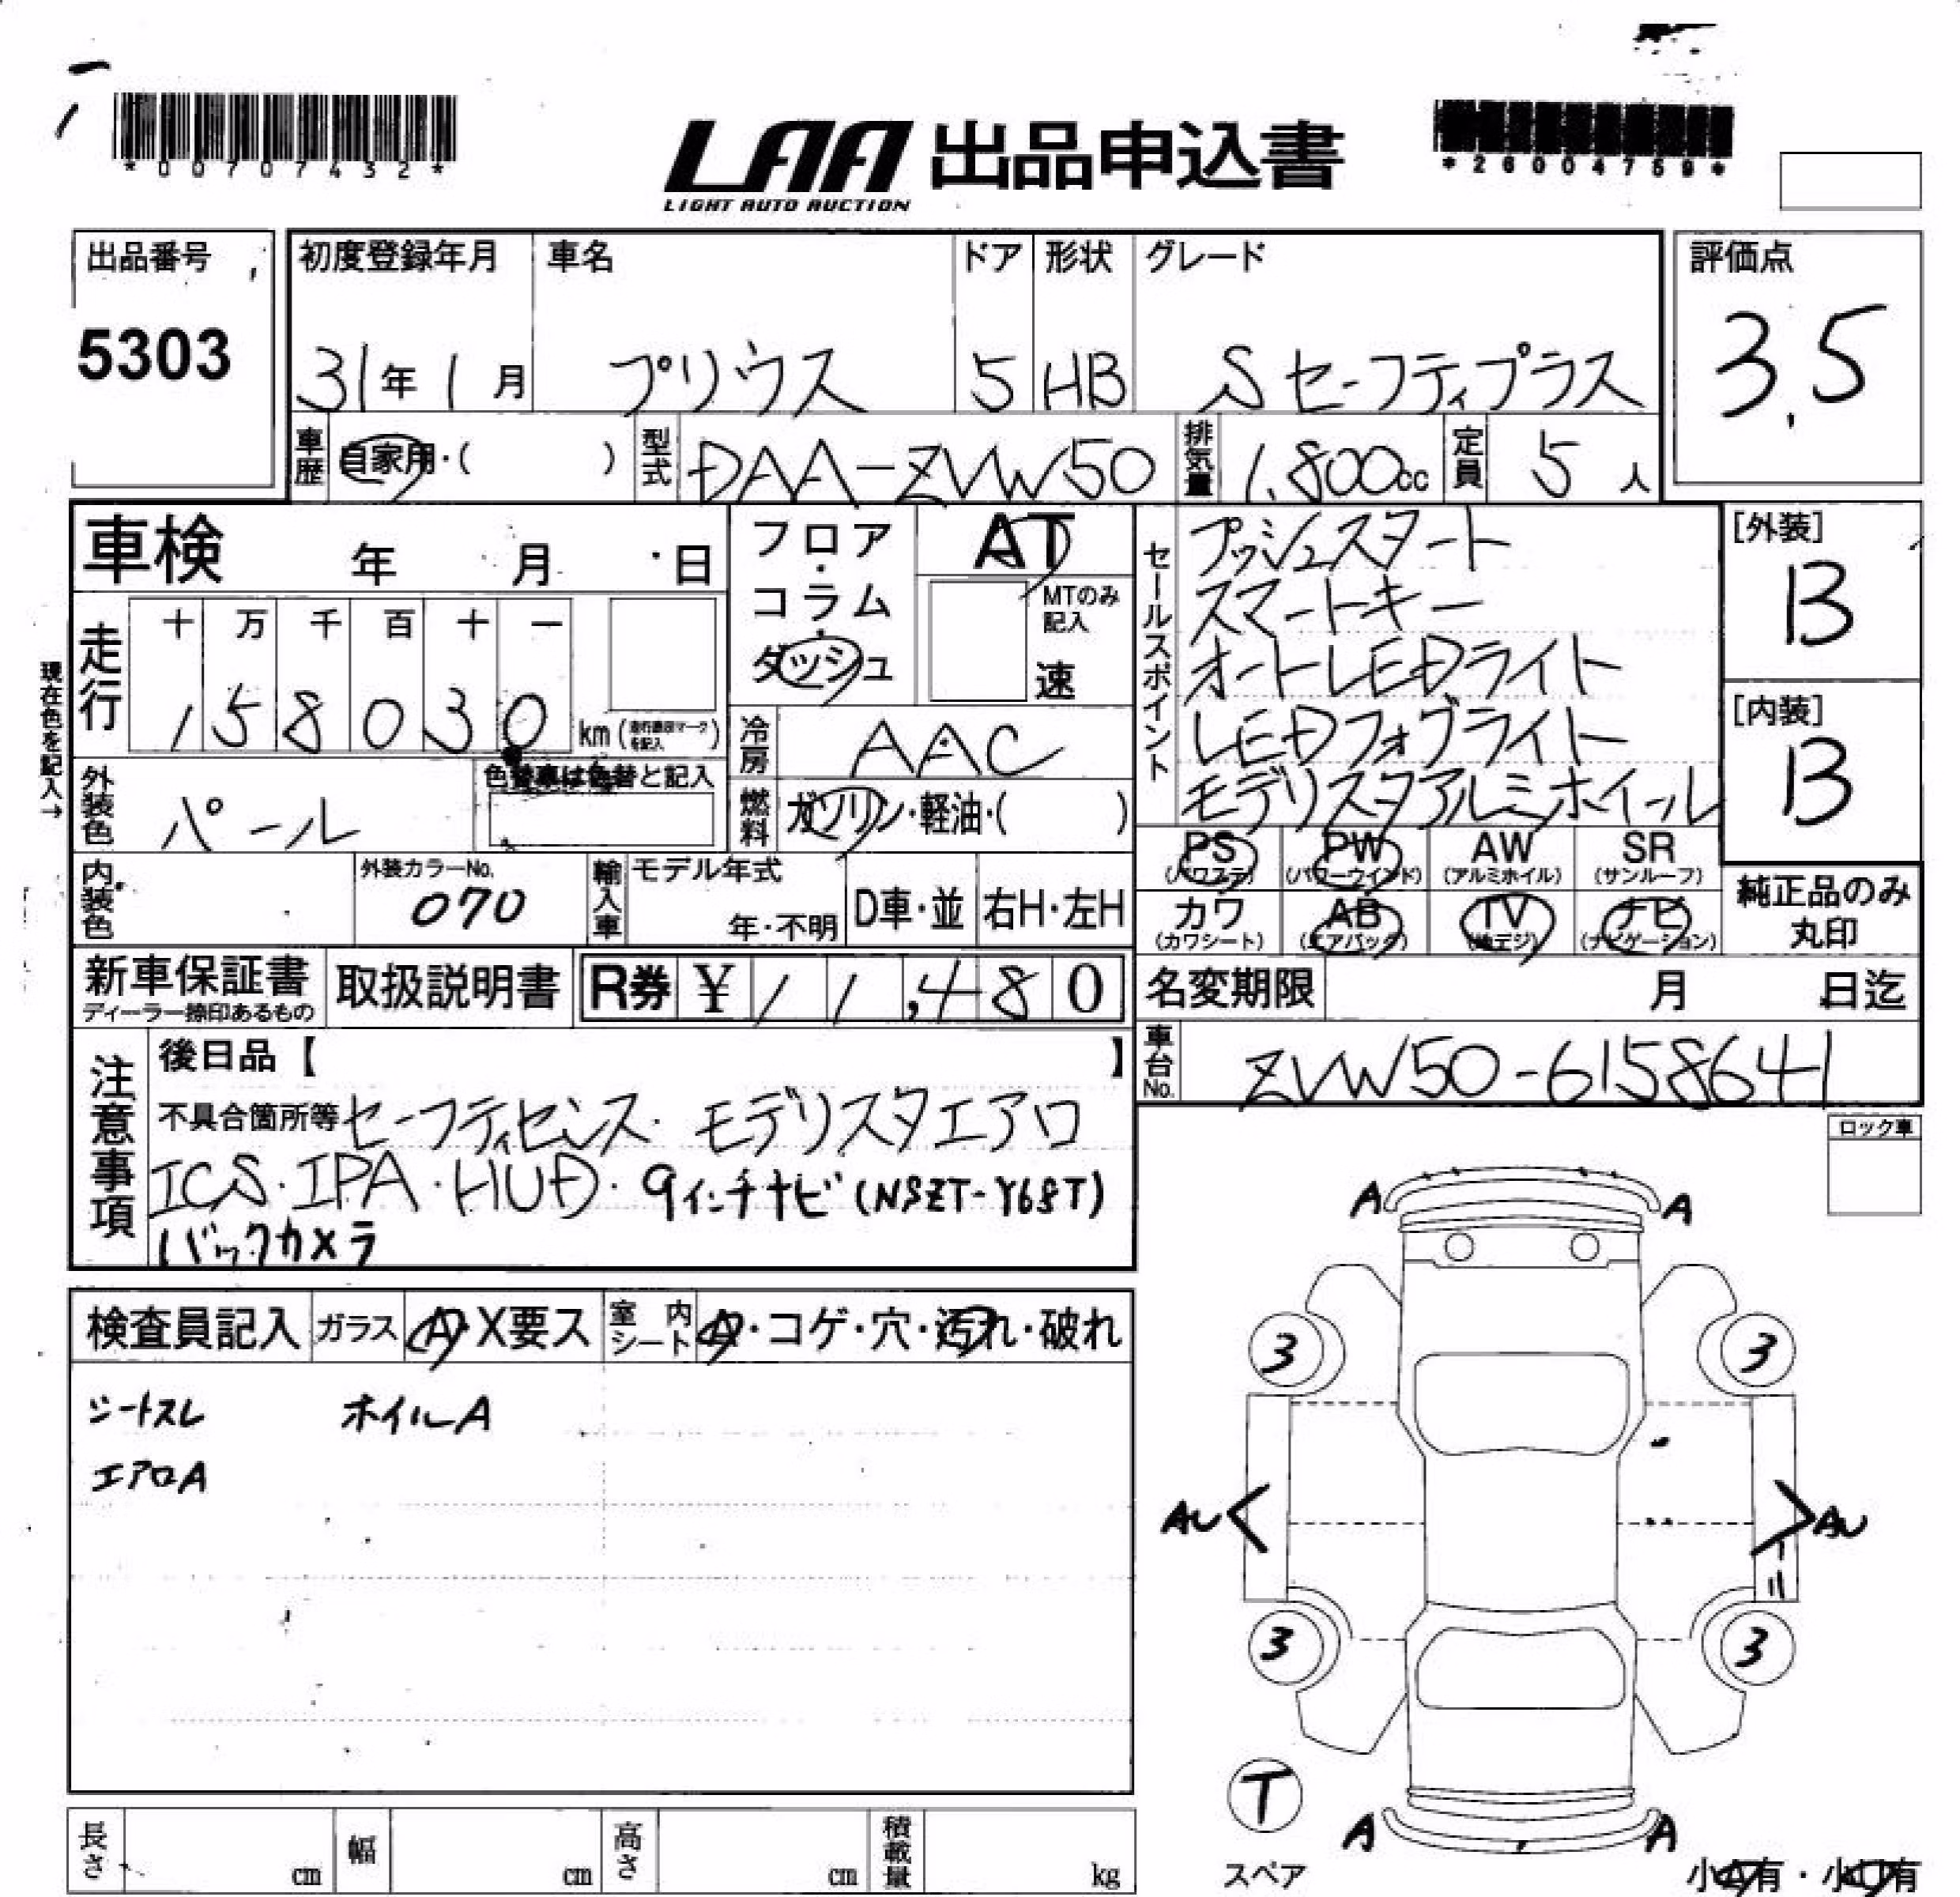 *00707432*
LAA 出品申込書
LIGHT AUTO AUCTION
*26004759*
出品番号
5303
初度登録年月 車名 ドア 形状 グレード
31年1月 プリウス 5 HB Sセーフティプラス
評価点
3.5
車歴 自家用・( ) 型式 DAA-ZVW50 排気量 1,800cc 定員 5人
車検 年 月 日
フロア・コラム・ダッシュ
AT
MTのみ記入
速
走行 十 万 千 百 十 一
158030 km (
を記入 )
現在色を記入→
外装色 パール
色替車は色替と記入
冷房 AAC
燃料 ガソリン・軽油・( )
セールスポイント
プッシュスタート
スマートキー
オートLEDライト
LEDフォグライト
モデリスタアルミホイール
[外装]
B
[内装]
B
PS AW SR PW
(パワステ) (パワーウインド) (アルミホイル) (サンルーフ)
カワ AB TV ナビ
(カワシート) (エアバッグ) (地デジ) (ナビゲーション)
純正品のみ
丸印
内装色
外装カラーNo.
070
輸入車 モデル年式
年・不明 D車・並 右H・左H
新車保証書
ディーラー捺印あるもの
取扱説明書 R券 ¥11,480
名変期限 月 日迄
車台No. ZVW50-6158641
注意事項
後日品【 】
不具合箇所等 セーフティセンス・モデリスタエアロ
ICS・IPA・HUD・9インチナビ(NSZT-Y68T)
バックカメラ
ロック車
検査員記入 ガラス A・X要ス 室内シート A・コゲ・穴・汚れ・破れ
シートスレ ホイルA
エアロA
A A
3 3
AU AU
3 3
T
スペア
A A
小A有・小U有
長さ cm 幅 cm 高さ cm 積載量 kg